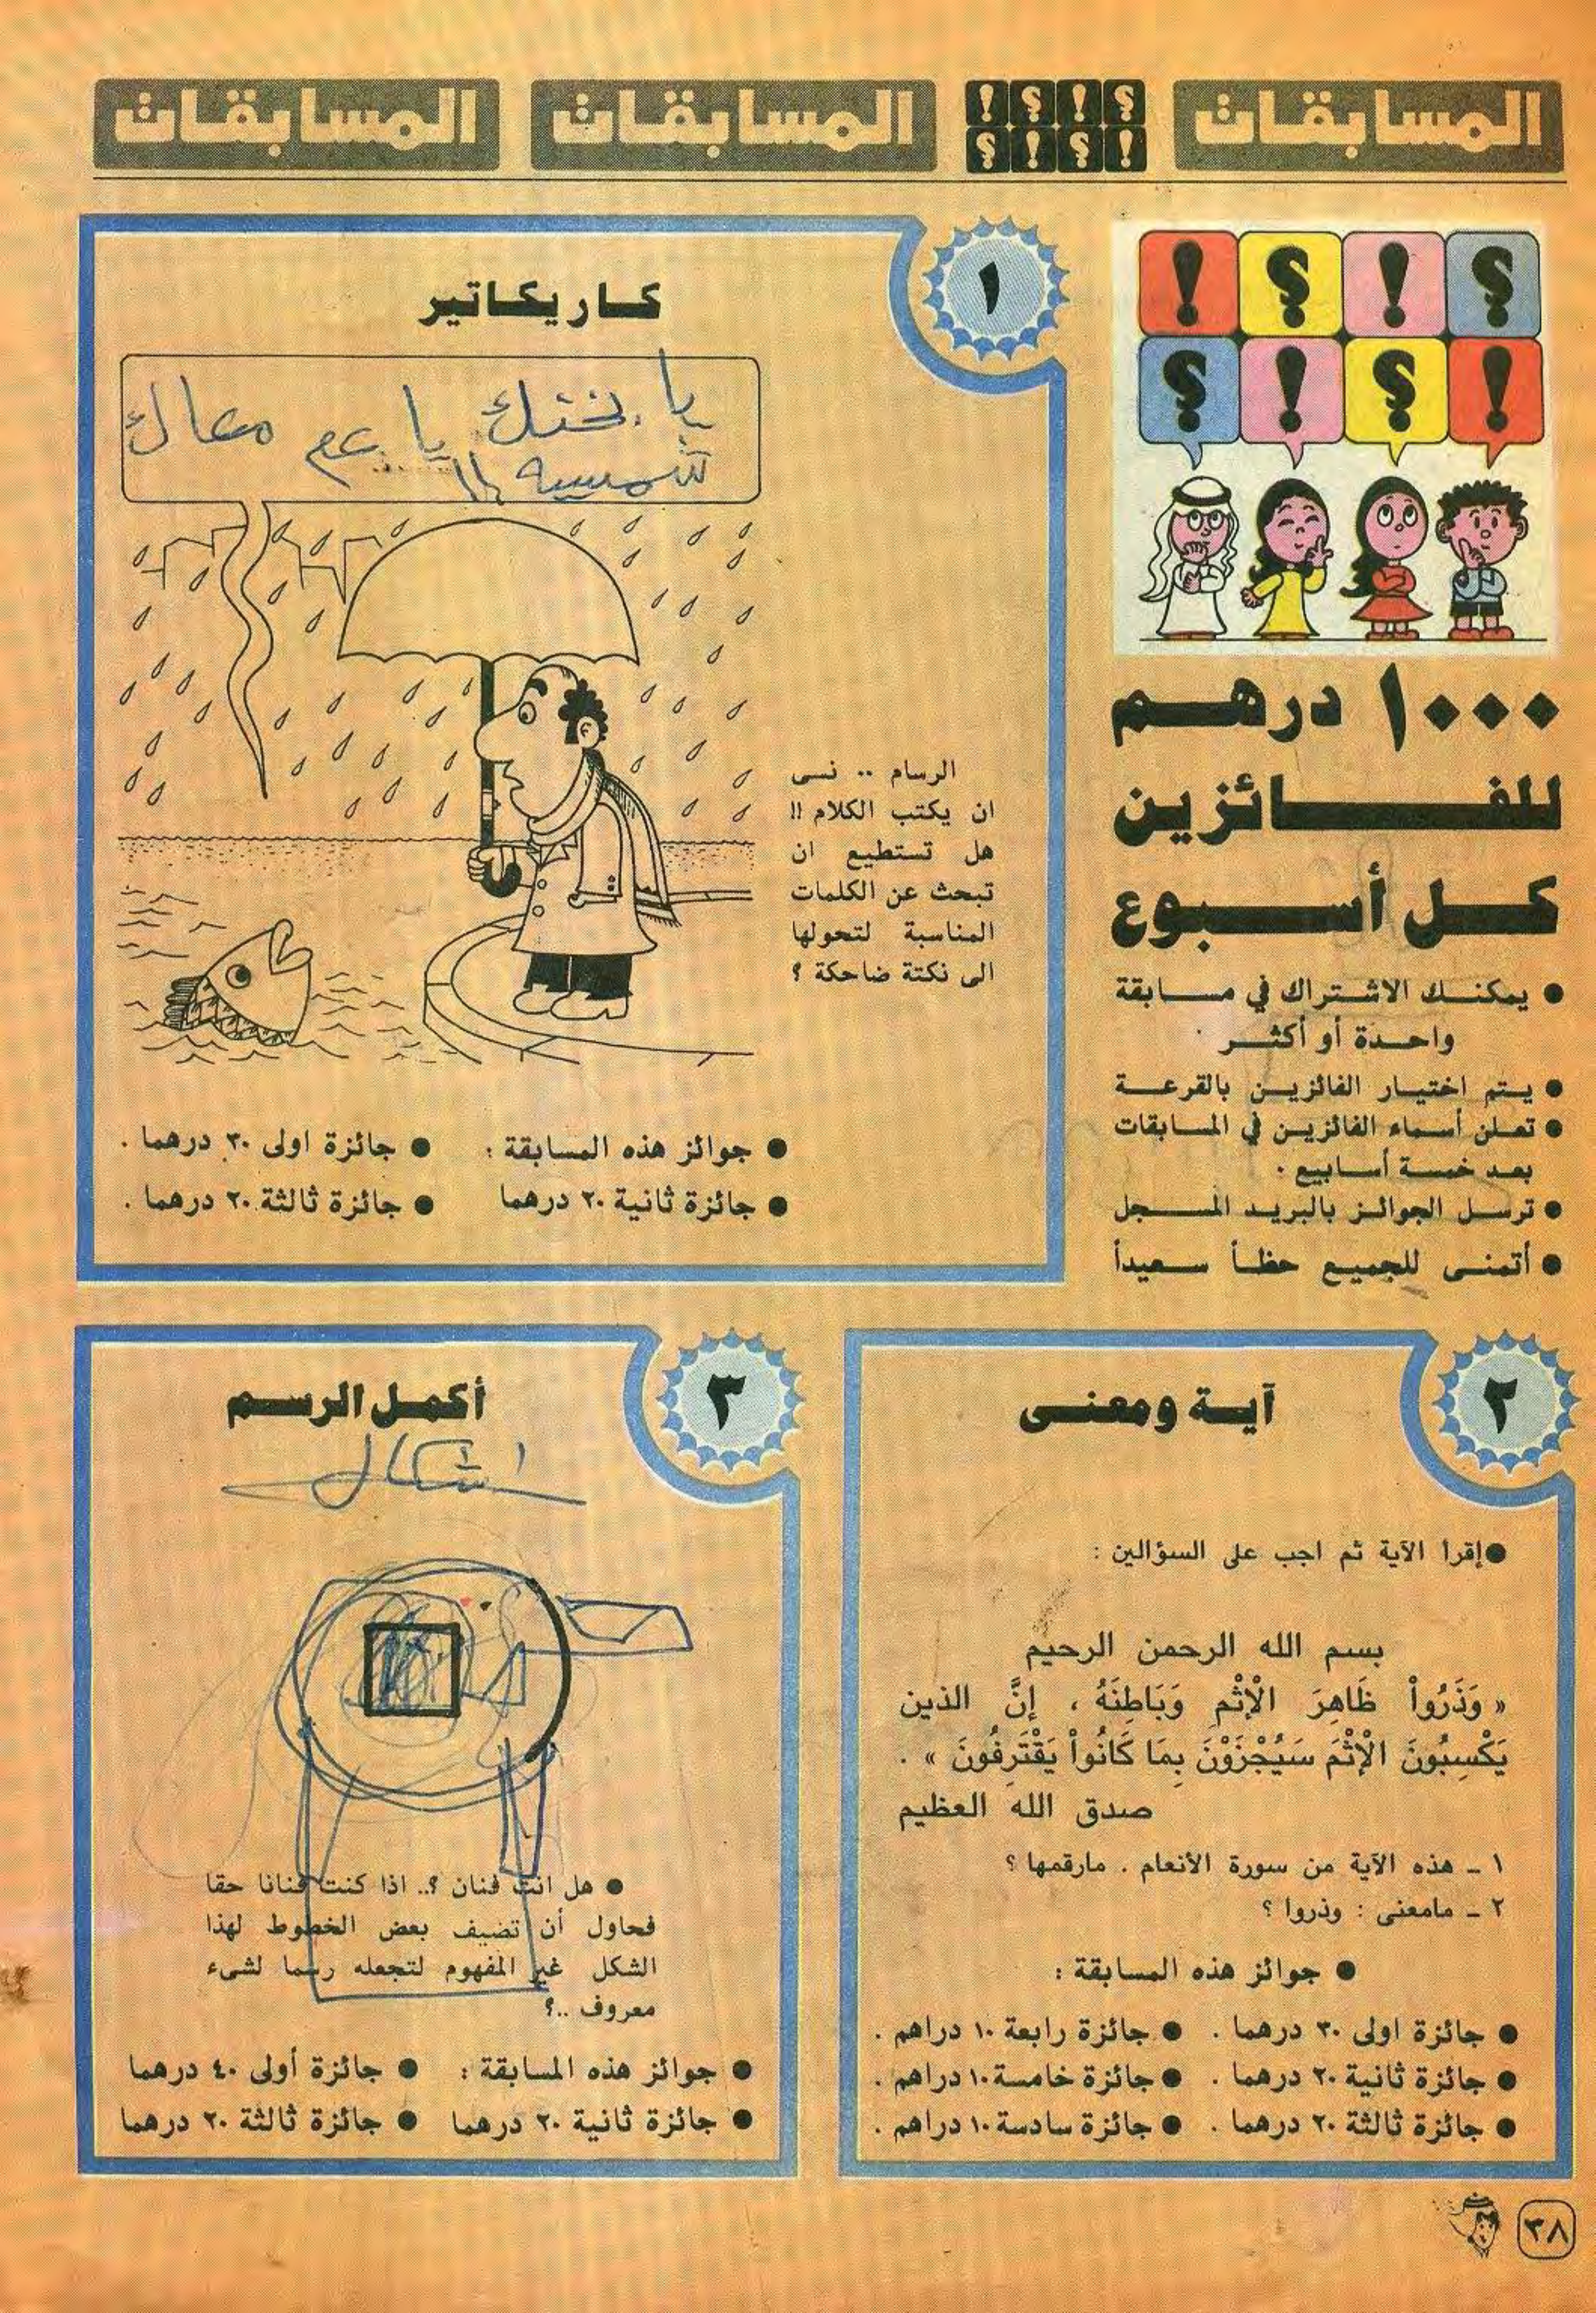 المسابقات
المسابقات
المسابقات
؟ ! ؟ !
! ؟ ! ؟
؟ ! ؟ !
! ؟ ! ؟
١٠٠٠ درهم
للفائزين
كل أسبوع
● يمكنك الاشتراك في مسابقة
واحدة أو أكثر
● يتم اختيار الفائزين بالقرعة
● تعلن أسماء الفائزين في المسابقات
بعد خمسة أسابيع .
● ترسل الجوائز بالبريد المسجل
● أتمنى للجميع حظاً سعيداً
١
كاريكاتير
يا بختك يا عم معاك
شمسيه !!
الرسام .. نسى
ان يكتب الكلام !!
هل تستطيع ان
تبحث عن الكلمات
المناسبة لتحولها
الى نكتة ضاحكة ؟
● جوائز هذه المسابقة : ● جائزة اولى ٣٠ درهما .
● جائزة ثانية ٢٠ درهما ● جائزة ثالثة ٢٠ درهما .
٢
آية ومعنى
● إقرأ الآية ثم اجب على السؤالين :
بسم الله الرحمن الرحيم
« وَذَرُواْ ظَاهِرَ الْإِثْمِ وَبَاطِنَهُ ، إِنَّ الذين
يَكْسِبُونَ الْإِثْمَ سَيُجْزَوْنَ بِمَا كَانُواْ يَقْتَرِفُونَ » .
صدق الله العظيم
١ ـ هذه الآية من سورة الأنعام . مارقمها ؟
٢ ـ مامعنى : وذروا ؟
● جوائز هذه المسابقة :
● جائزة اولى ٣٠ درهما . ● جائزة رابعة ١٠ دراهم .
● جائزة ثانية ٢٠ درهما . ● جائزة خامسة ١٠ دراهم .
● جائزة ثالثة ٢٠ درهما . ● جائزة سادسة ١٠ دراهم .
٣
أكمل الرسم
اشكال
● هل انت فنان ؟.. اذا كنت فنانا حقا
فحاول أن تضيف بعض الخطوط لهذا
الشكل غير المفهوم لتجعله رسما لشىء
معروف ..؟
● جوائز هذه المسابقة : ● جائزة أولى ٤٠ درهما
● جائزة ثانية ٢٠ درهما ● جائزة ثالثة ٢٠ درهما
٣٨